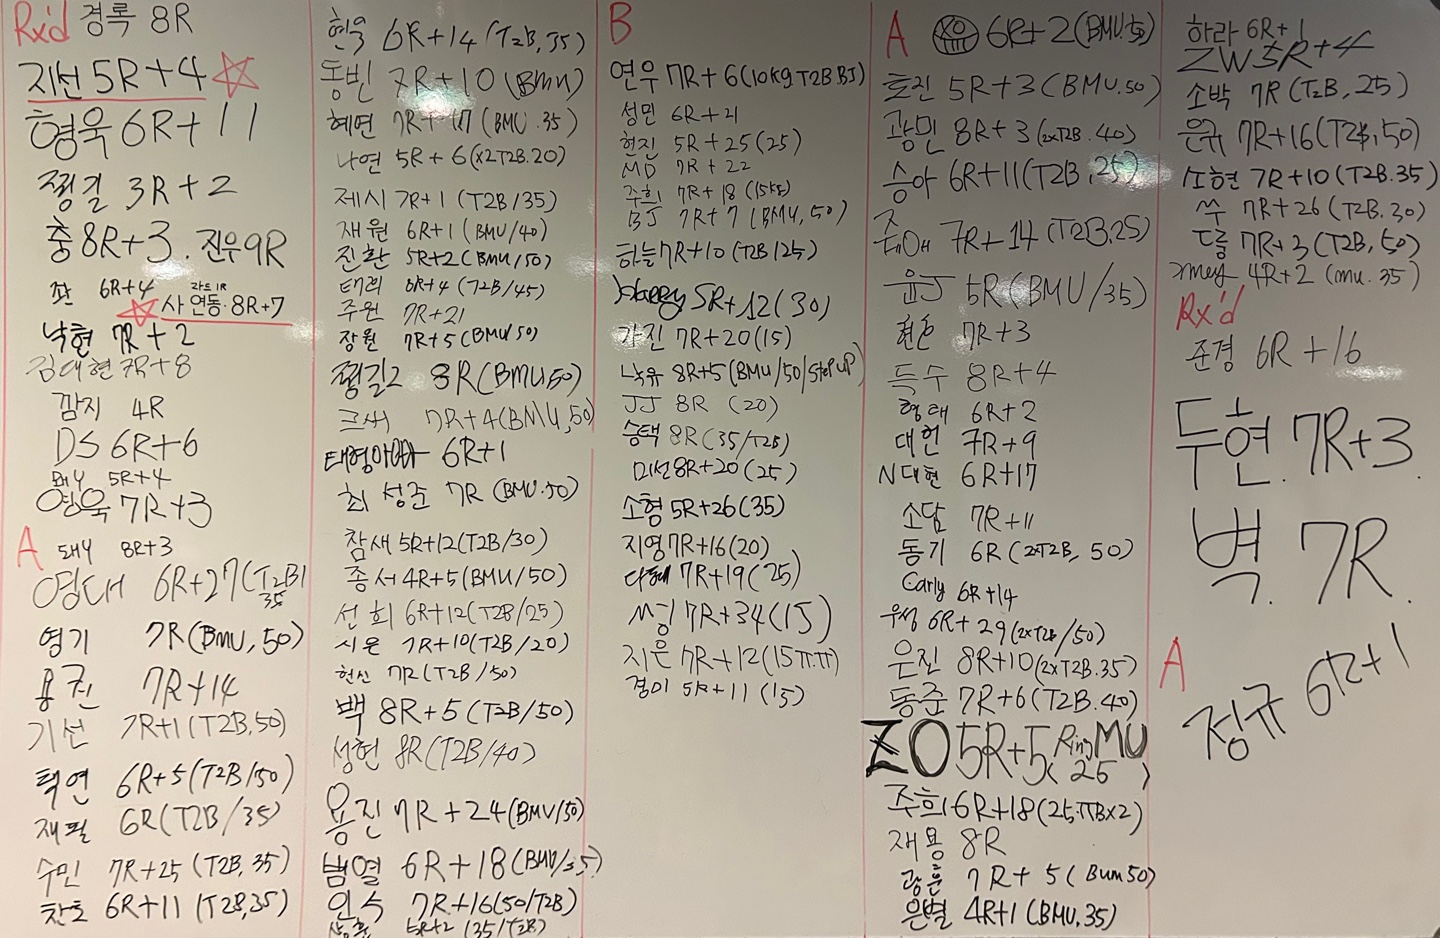 Rx'd 경록 8R
지선 5R+4
형욱 6R+11
찡길 3R+2
충 8R+3 . 진우 9R
좐 6R+4
라드 1R
사 연동· 8R+7
낙현 7R+2
김대현 7R+8
깜지 4R
DS 6R+6
5R+4
영욱 7R+3
A 돼Y 8R+3
영대 6R+27(T2B/35
영기 7R(BMU, 50)
용진 7R+14
기선 7R+1(T2B,50)
택연 6R+5(T2B/50)
재필 6R(T2B/35)
수민 7R+25 (T2B, 35)
찬호 6R+11 (T2B,35)
현욱 6R+14 (T2B, 35)
동빈 7R+10 (BMU)
혜연 7R+17 (BMU.35)
나연 5R+6(x2T2B.20)
제시 7R+1 (T2B/35)
재원 6R+1 (BMU/40)
진환 5R+2(BMU/50)
태리 6R+4 (T2B/45)
주원 7R+21
장원 7R+5(BMU/50)
찡길2 8R(BMU50)
크새 7R+4(BMU,50)
태형아빠 6R+1
최성준 7R (BMU.50)
참새 5R+12(T2B/30)
종서 4R+5(BMU/50)
선희 6R+12(T2B/25)
시온 7R+10(T2B/20)
현신 7R(T2B/50)
백 8R+5 (T2B/50)
성현 8R(T2B/40)
용진 7R+24(BMU/50)
범열 6R+18(BMU/35)
인수 7R+16(50/T2B)
5R+2 (35/T2B)
B
연우 7R+6(10kg T2B BJ)
성민 6R+21
현진 5R+25(25)
MD 7R+22
주희 7R+18 (15kg)
BJ 7R+7 (BMU, 50)
하늘 7R+10(T2B/25)
Happy 5R+12(30)
가진 7R+20(15)
낙유 8R+5(BMU/50/step up)
JJ 8R (20)
승택 8R(35/T2B)
미선 8R+20(25)
소형 5R+26(35)
지영 7R+16(20)
다혜 7R+19(25)
써니 7R+34(15)
지은 7R+12(15ㅠ.ㅠ)
경이 5R+11 (15)
A 6R+2(BMU.50)
효진 5R+3(BMU.50)
광민 8R+3(2xT2B.40)
승아 6R+11(T2B, 25)
7R+14(T2B.25)
윤J 5R(BMU/35)
현승 7R+3
득수 8R+4
형태 6R+2
대헌 7R+9
N대현 6R+17
소담 7R+11
동기 6R(2xT2B, 50)
Carly 6R+14
우성 6R+29(2xT2B/50)
은진 8R+10(2xT2B.35)
동준 7R+6(T2B.40)
ZO 5R+5(Ring MU 25)
주희 6R+18(25.ㅠBx2)
재용 8R
광훈 7R+5(Bum50)
은별 4R+1(BMU.35)
하라 6R+1
ZW 3R+4
소박 7R(T2B, 25)
은규 7R+16(T2B,50)
소현 7R+10(T2B.35)
쑤 7R+26(T2B.30)
두릉 7R+3(T2B, 50)
4R+2 (mu. 35)
Rx'd
준경 6R+16
두현. 7R+3.
벽. 7R.
A
정규 6R+1